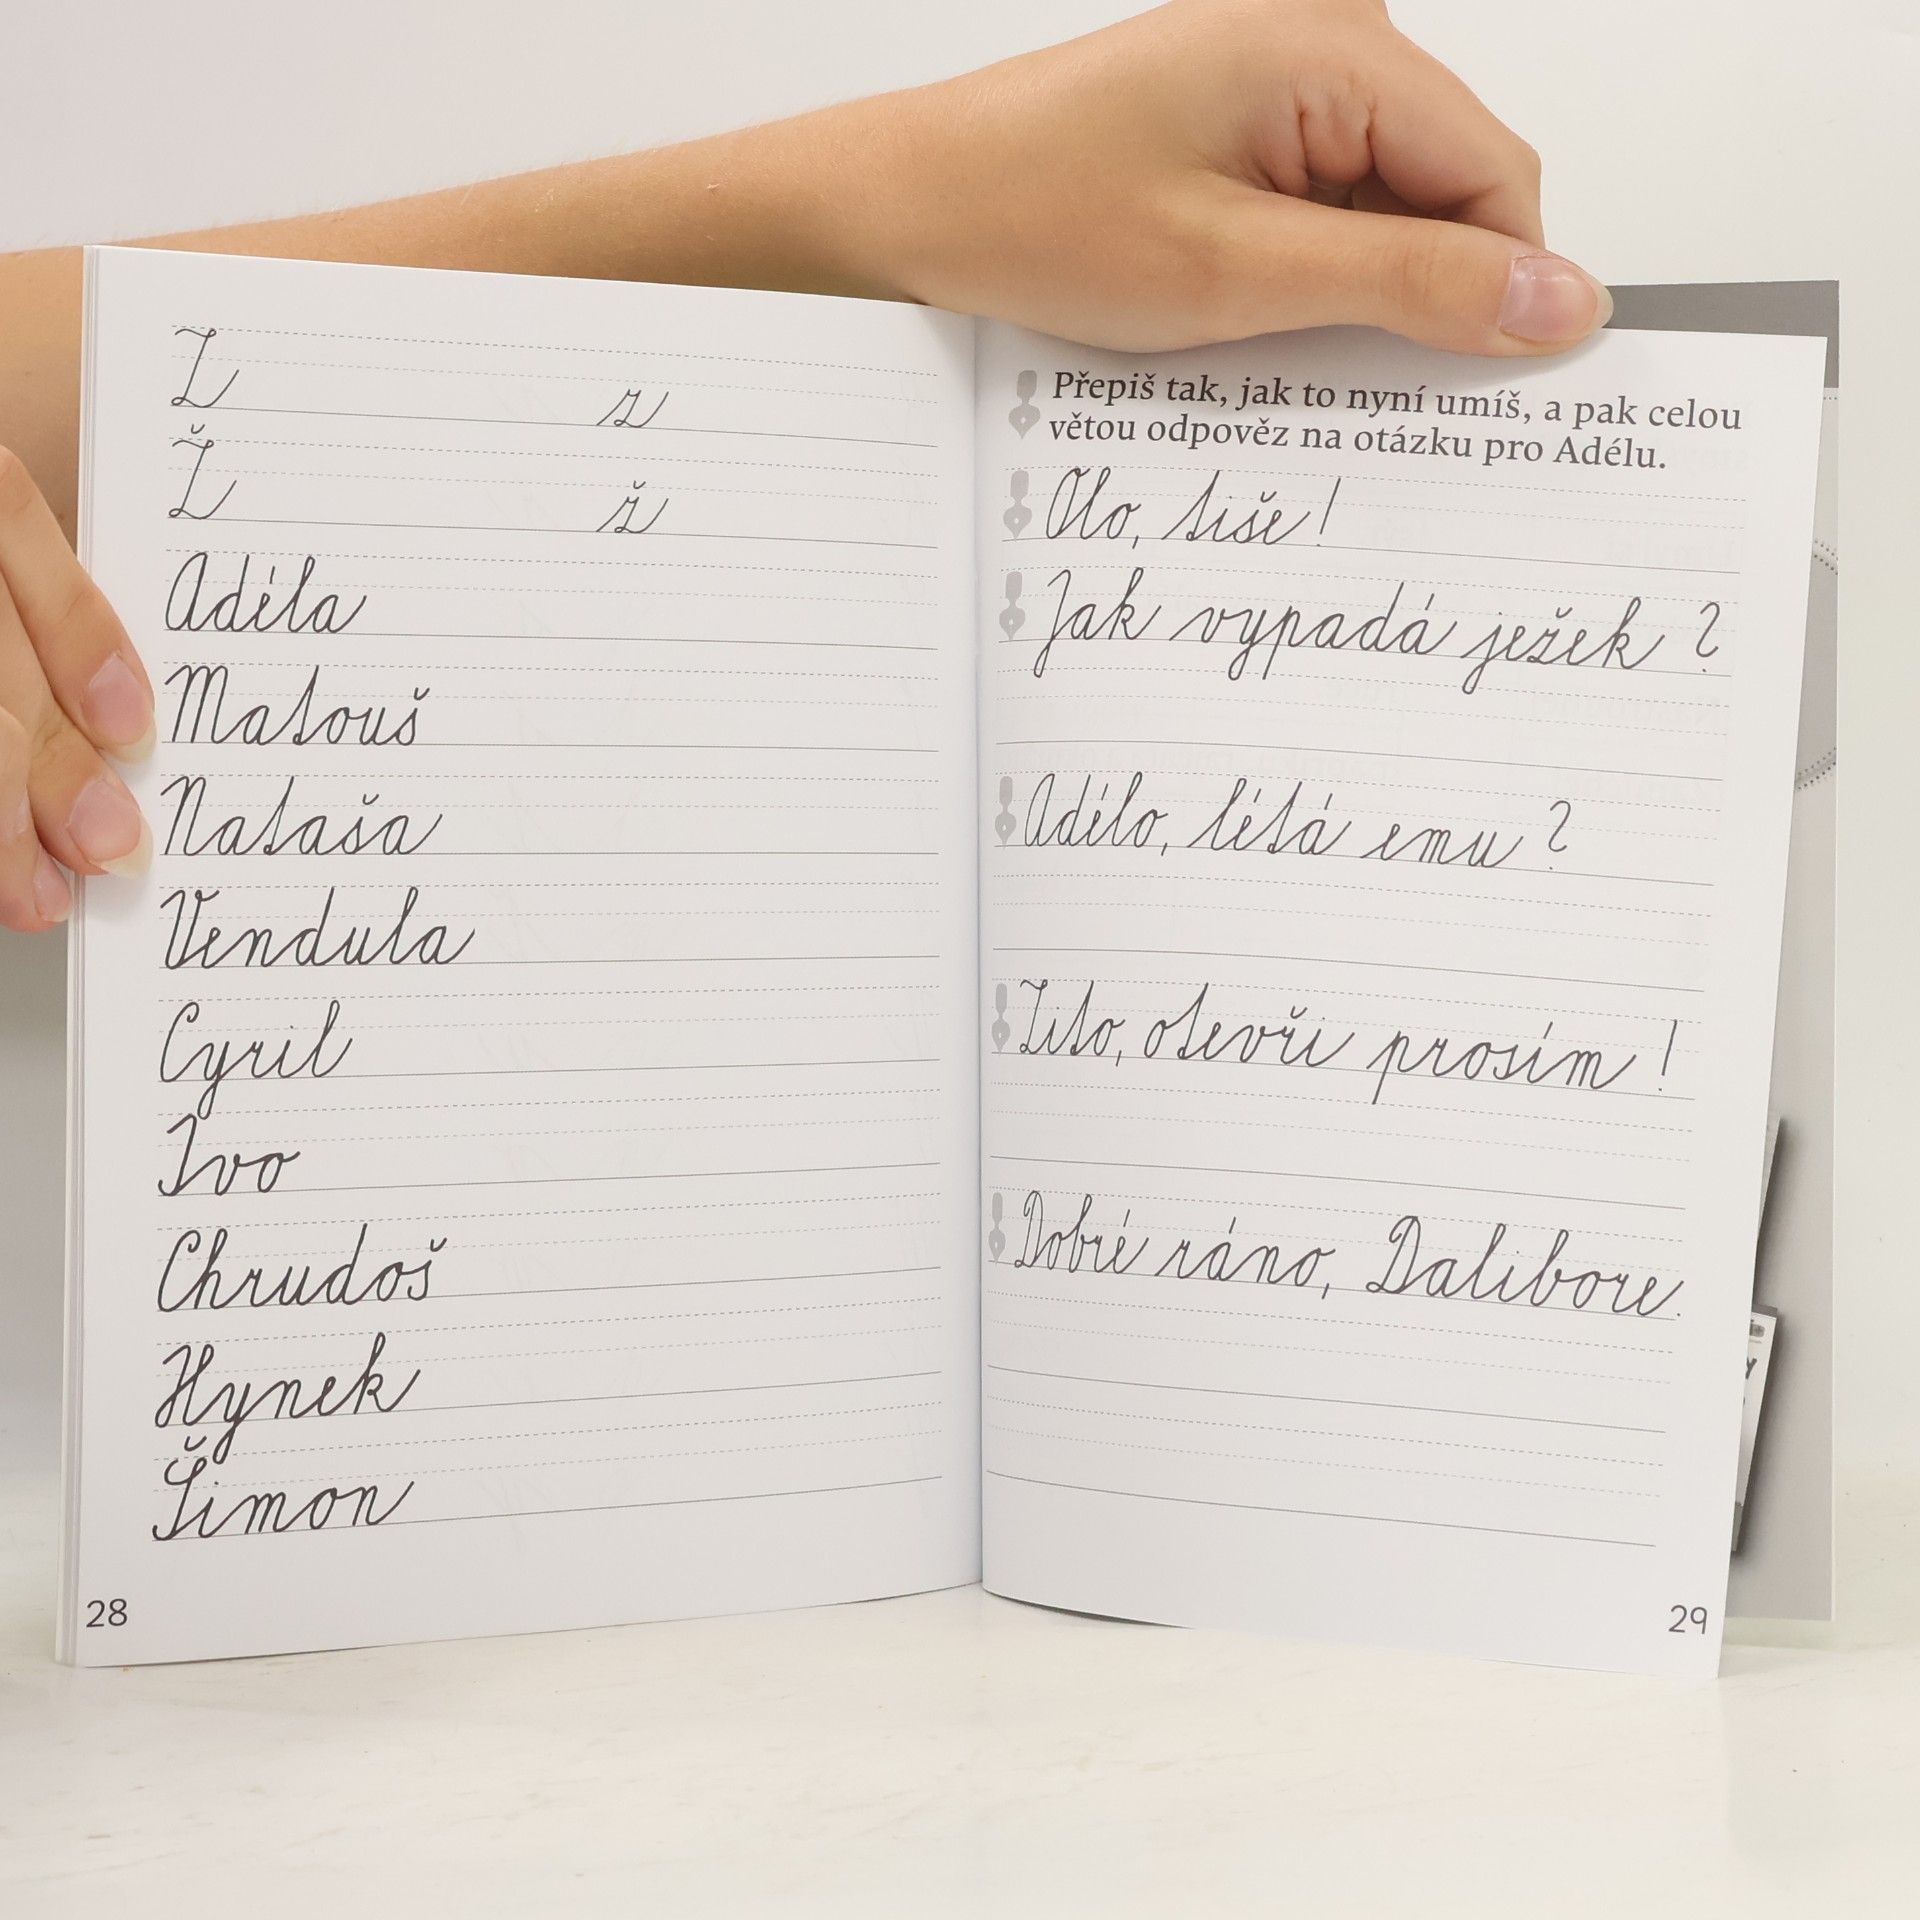 Z z
Ž ž
Adéla
Matouš
Nataša
Vendula
Cyril
Ivo
Chrudoš
Hynek
Šimon
28
Přepiš tak, jak to nyní umíš, a pak celou
větou odpověz na otázku pro Adélu.
Olo, tiše!
Jak vypadá ježek?
Adélo, létá emu?
Zito, otevři prosím!
Dobré ráno, Dalibore.
29